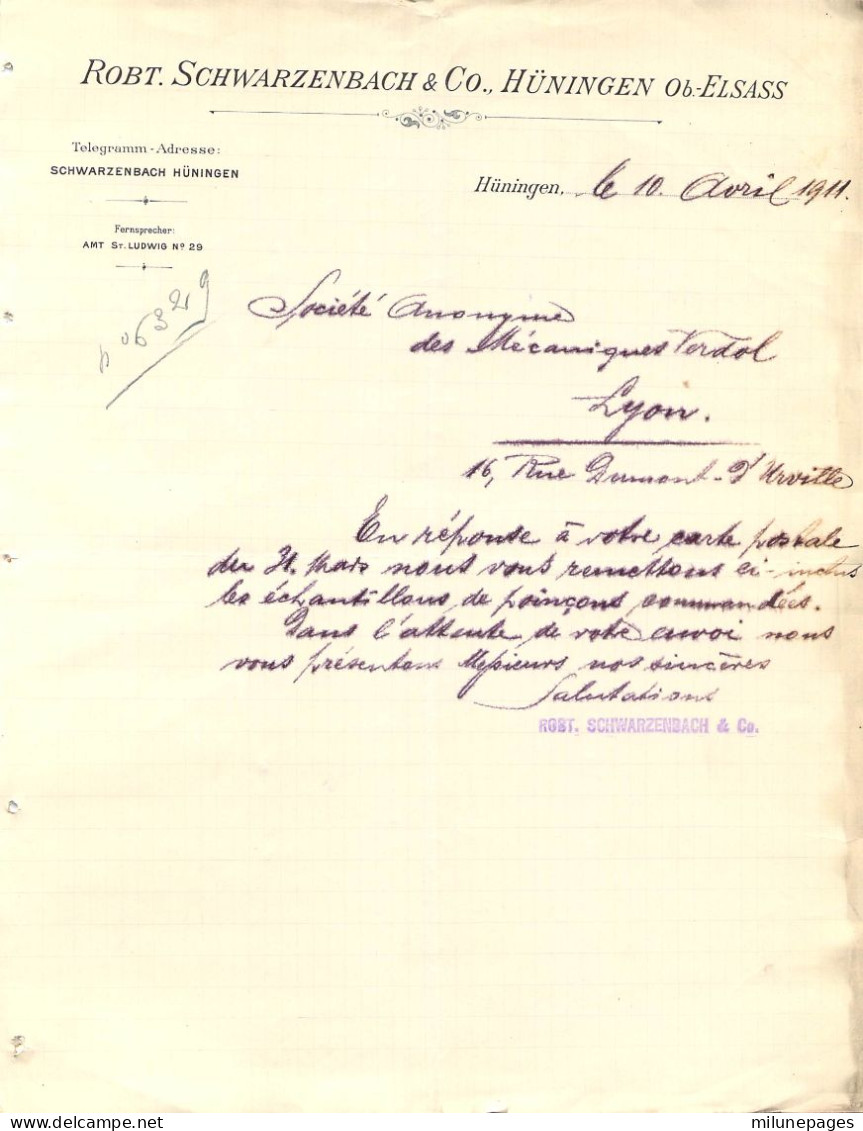 ROBT. SCHWARZENBACH & CO., HÜNINGEN OB.-ELSASS
Telegramm-Adresse:
SCHWARZENBACH HÜNINGEN
Hüningen, le 10. Avril 1911.
Fernsprecher:
AMT ST. LUDWIG Nº 29
Société Anonyme
des Mécaniques Verdol
Lyon.
16, Rue Dumont-d'Urville
En réponse à votre carte postale
du 31. Mars nous vous remettons ci-inclus
les échantillons de poinçons commandées.
Dans l'attente de votre envoi nous
vous présentons Messieurs nos sincères
Salutations
ROBT. SCHWARZENBACH & Co.
milunepages